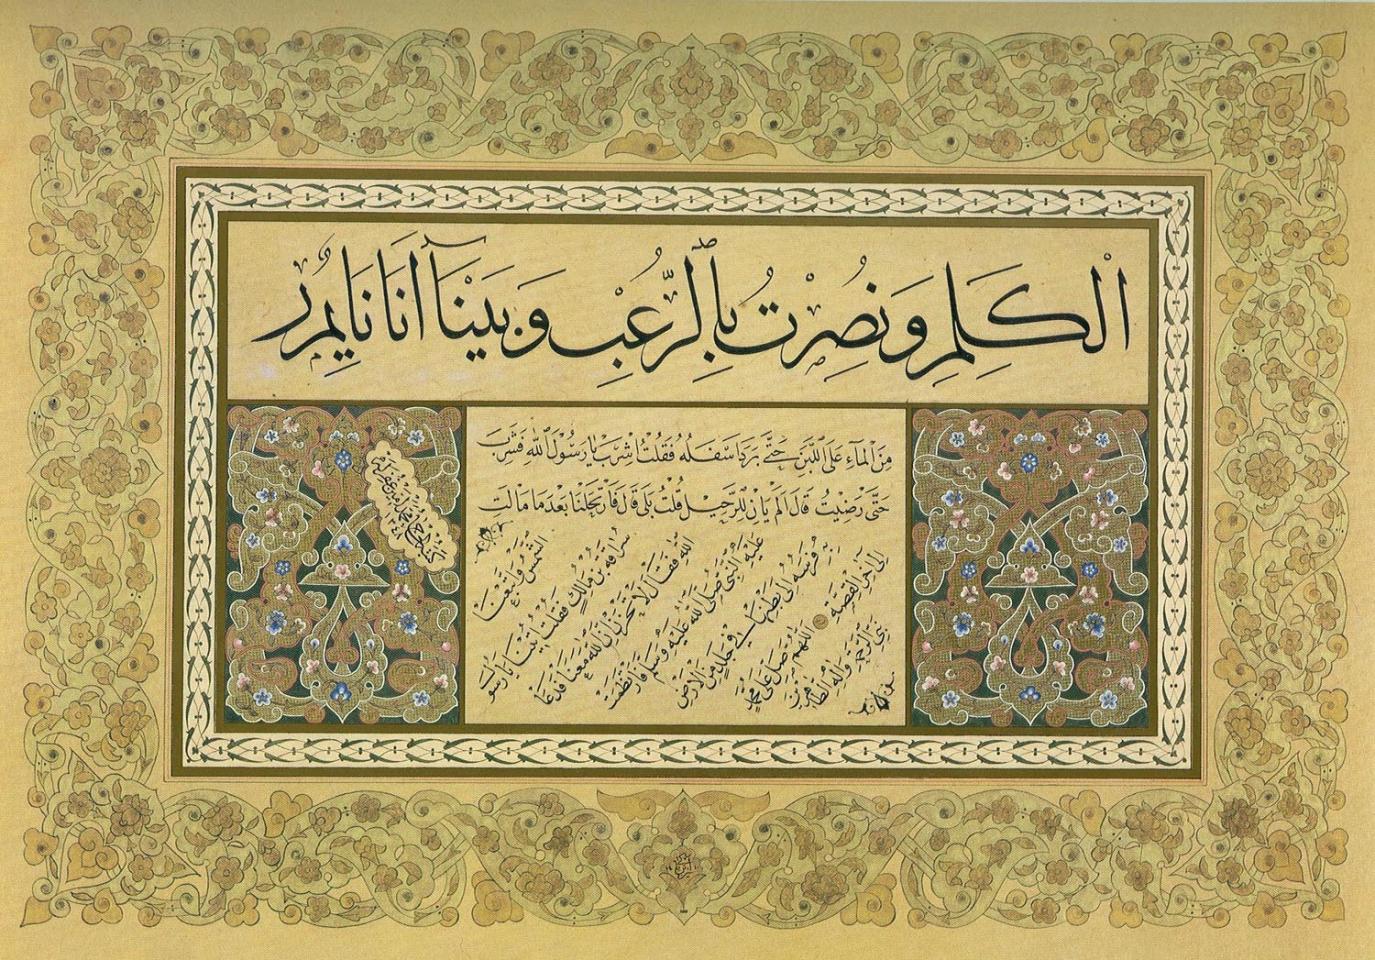 الْكَلِمِ وَنُصِرْتُ بِالرُّعْبِ وَبَيْنَآ اَنَا نَايِمٌ ر
مِنَ الْمَاۤءِ عَلَى اللَّبَنِ حَتّٰى بَرَدَ اَسْفَلُهُ فَقُلْتُ اشْرَبْ يَا رَسُوْلَ اللّٰهِ فَشَرِبَ
حَتّٰى رَضِيْتُ قَالَ اَلَمْ يَاْنِ لِلرَّحِيْلِ قُلْتُ بَلٰى قَالَ فَارْتَحَلْنَا بَعْدَ مَا مَالَتِ
الشَّمْسُ وَاتَّبَعَنَا
سُرَاقَةُ بْنُ مَالِكٍ فَقُلْتُ اُتِيْنَا يَا رَسُوْلَ
اللّٰهِ فَقَالَ لَا تَحْزَنْ اِنَّ اللّٰهَ مَعَنَا فَدَعَا
عَلَيْهِ النَّبِىُّ صَلَّى اللّٰهُ عَلَيْهِ وَسَلَّمَ فَارْتَطَمَتْ
بِهِ فَرَسُهُ اِلٰى بَطْنِهَا فِى جَلَدٍ مِنَ الْاَرْضِ
اِلٰى اٰخِرِ الْقِصَّةِ اَللّٰهُمَّ صَلِّ عَلٰى مُحَمَّدٍ
نَبِىِّ الرَّحْمَةِ وَاٰلِهِ الطَّاهِرِيْنَ